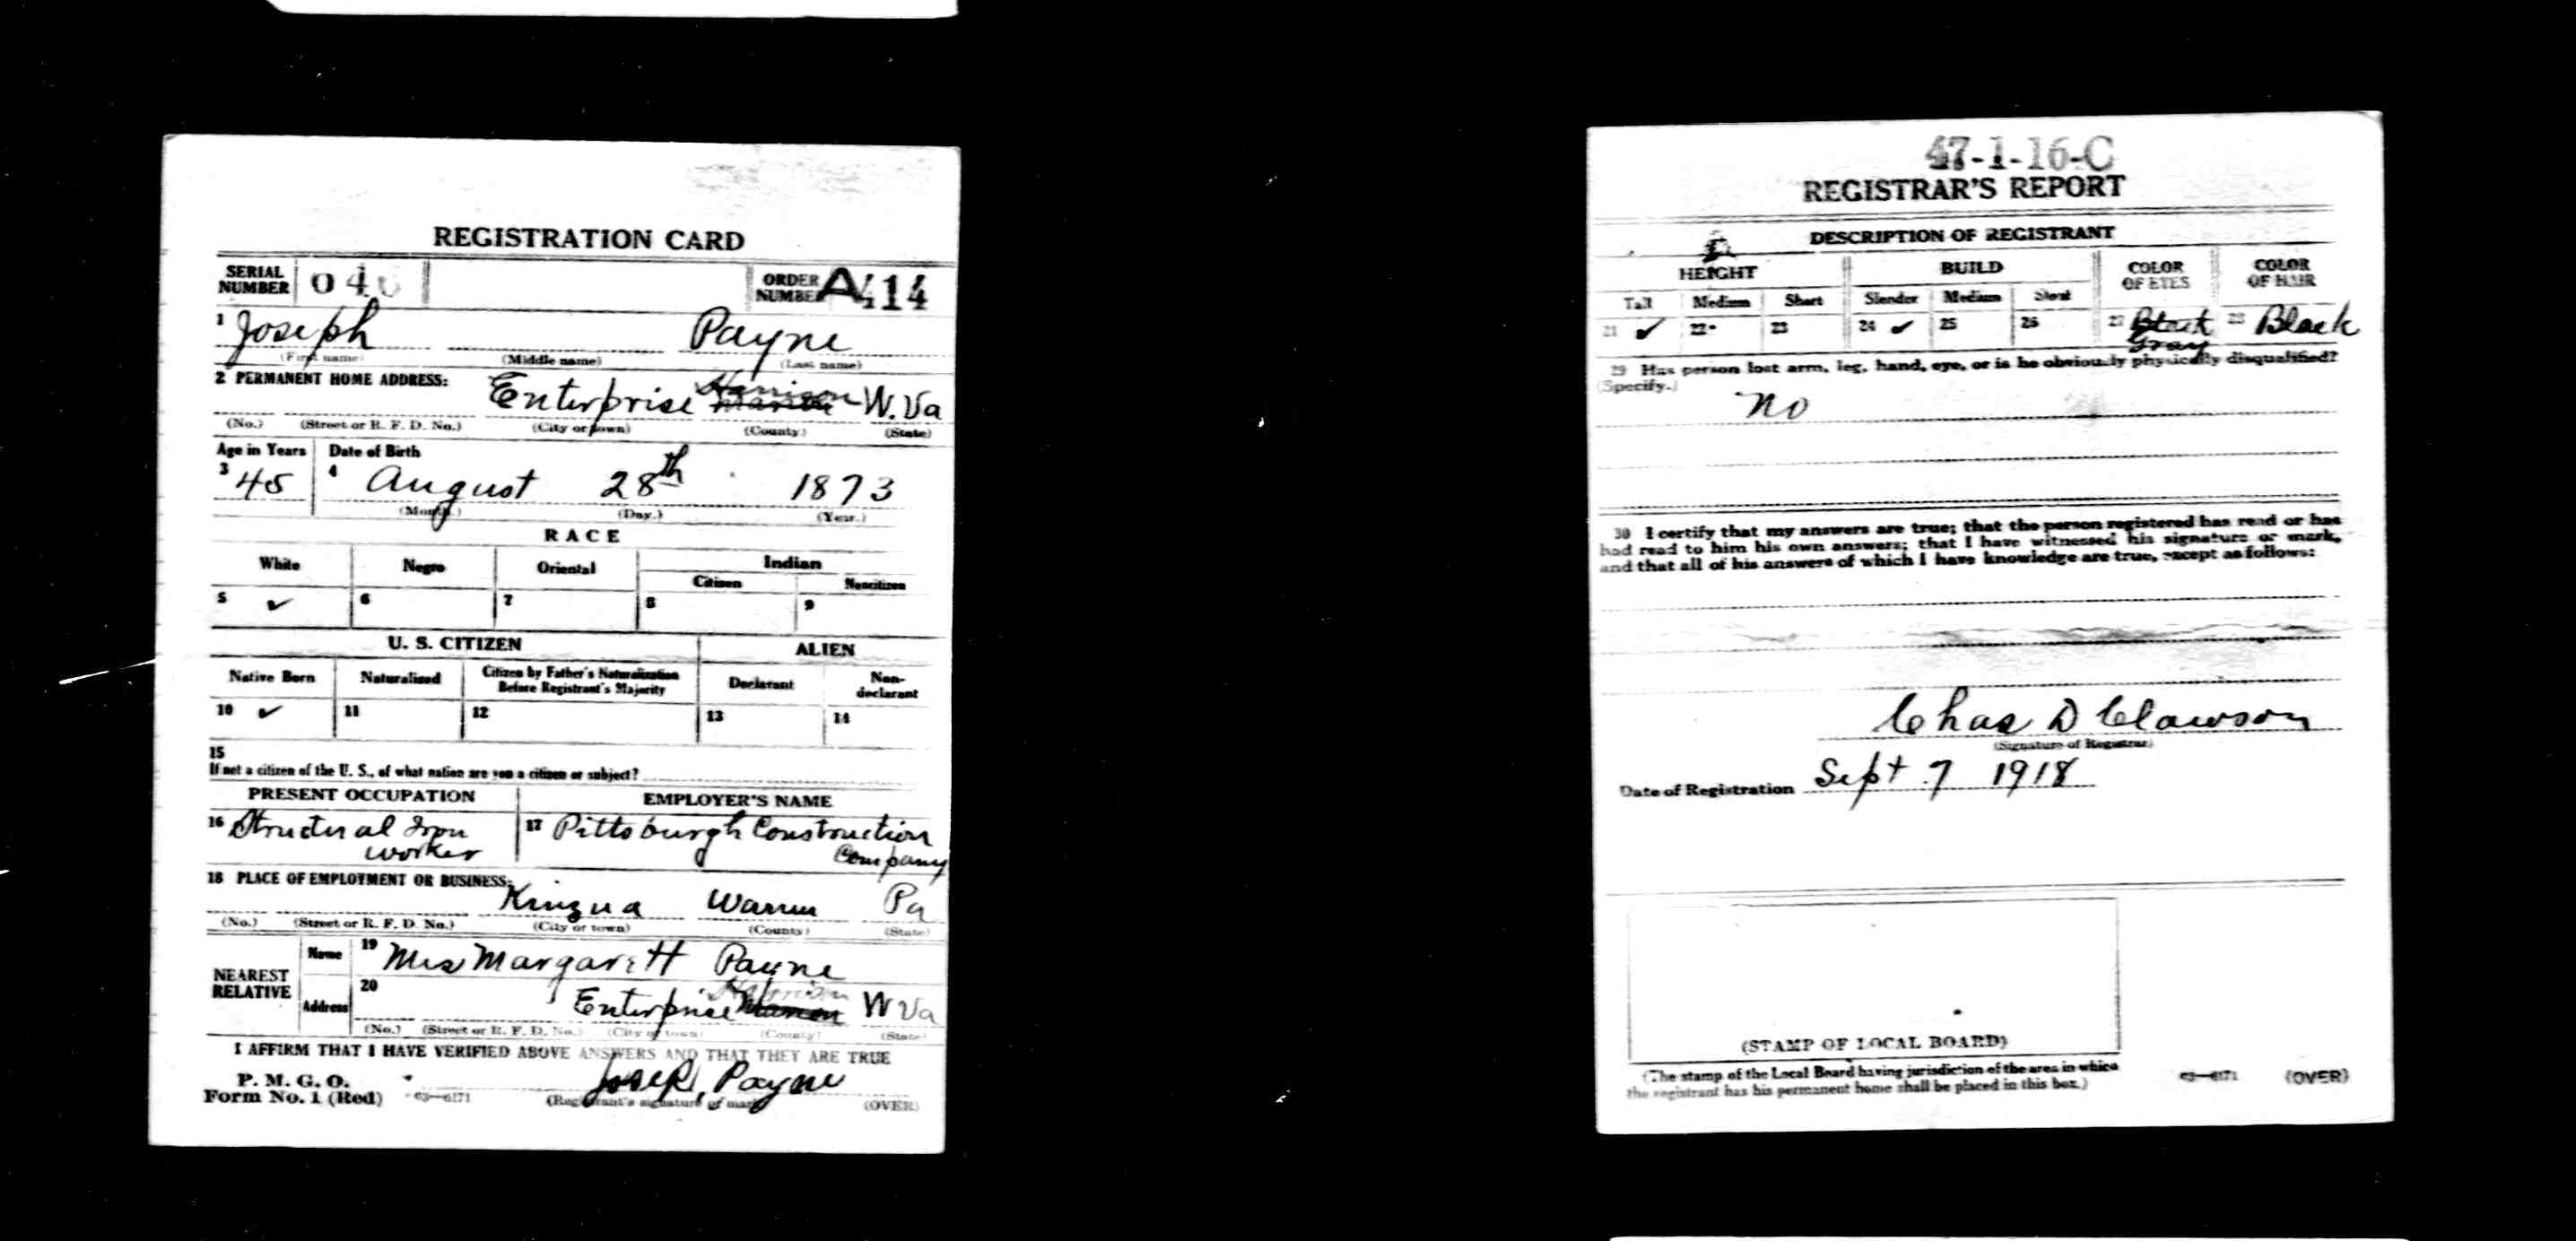 REGISTRATION CARD
SERIAL NUMBER 04 ORDER NUMBER A414
1 Joseph Payne
(First name) (Middle name) (Last name)
2 PERMANENT HOME ADDRESS:
Enterprise Harrison Marion W.Va
(No.) (Street or R. F. D. No.) (City or town) (County) (State)
Age in Years Date of Birth
3 45 4 August 28th 1873
(Month.) (Day.) (Year.)
RACE
White Negro Oriental Indian
Citizen Noncitizen
5 ✓ 6 7 8 9
U. S. CITIZEN ALIEN
Native Born Naturalized Citizen by Father's Naturalization Before Registrant's Majority Declarant Non-declarant
10 ✓ 11 12 13 14
15
If not a citizen of the U. S., of what nation are you a citizen or subject?
PRESENT OCCUPATION EMPLOYER'S NAME
16 Structural Iron worker 17 Pittsburgh Construction Company
18 PLACE OF EMPLOYMENT OR BUSINESS:
Kinzua Warren Pa
(No.) (Street or R. F. D. No.) (City or town) (County) (State)
NEAREST RELATIVE
Name 19 Mrs Margarett Payne
Address 20 Enterprise Harrison Marion W Va
(No.) (Street or R. F. D. No.) (City or town) (County) (State)
I AFFIRM THAT I HAVE VERIFIED ABOVE ANSWERS AND THAT THEY ARE TRUE
P. M. G. O.
Form No. 1 (Red) 63—6171 Joseph Payne
(Registrant's signature or mark) (OVER)
47-1-16-C
REGISTRAR'S REPORT
DESCRIPTION OF REGISTRANT
HEIGHT BUILD COLOR OF EYES COLOR OF HAIR
Tall Medium Short Slender Medium Stout
21 ✓ 22 23 24 ✓ 25 26 27 Black Gray 28 Black
29 Has person lost arm, leg, hand, eye, or is he obviously physically disqualified?
(Specify.)
no
30 I certify that my answers are true; that the person registered has read or has
had read to him his own answers; that I have witnessed his signature or mark,
and that all of his answers of which I have knowledge are true, except as follows:
Chas D Clawson
(Signature of Registrar)
Date of Registration Sept 7 1918
(STAMP OF LOCAL BOARD)
(The stamp of the Local Board having jurisdiction of the area in which
the registrant has his permanent home shall be placed in this box.)
63—6171 (OVER)